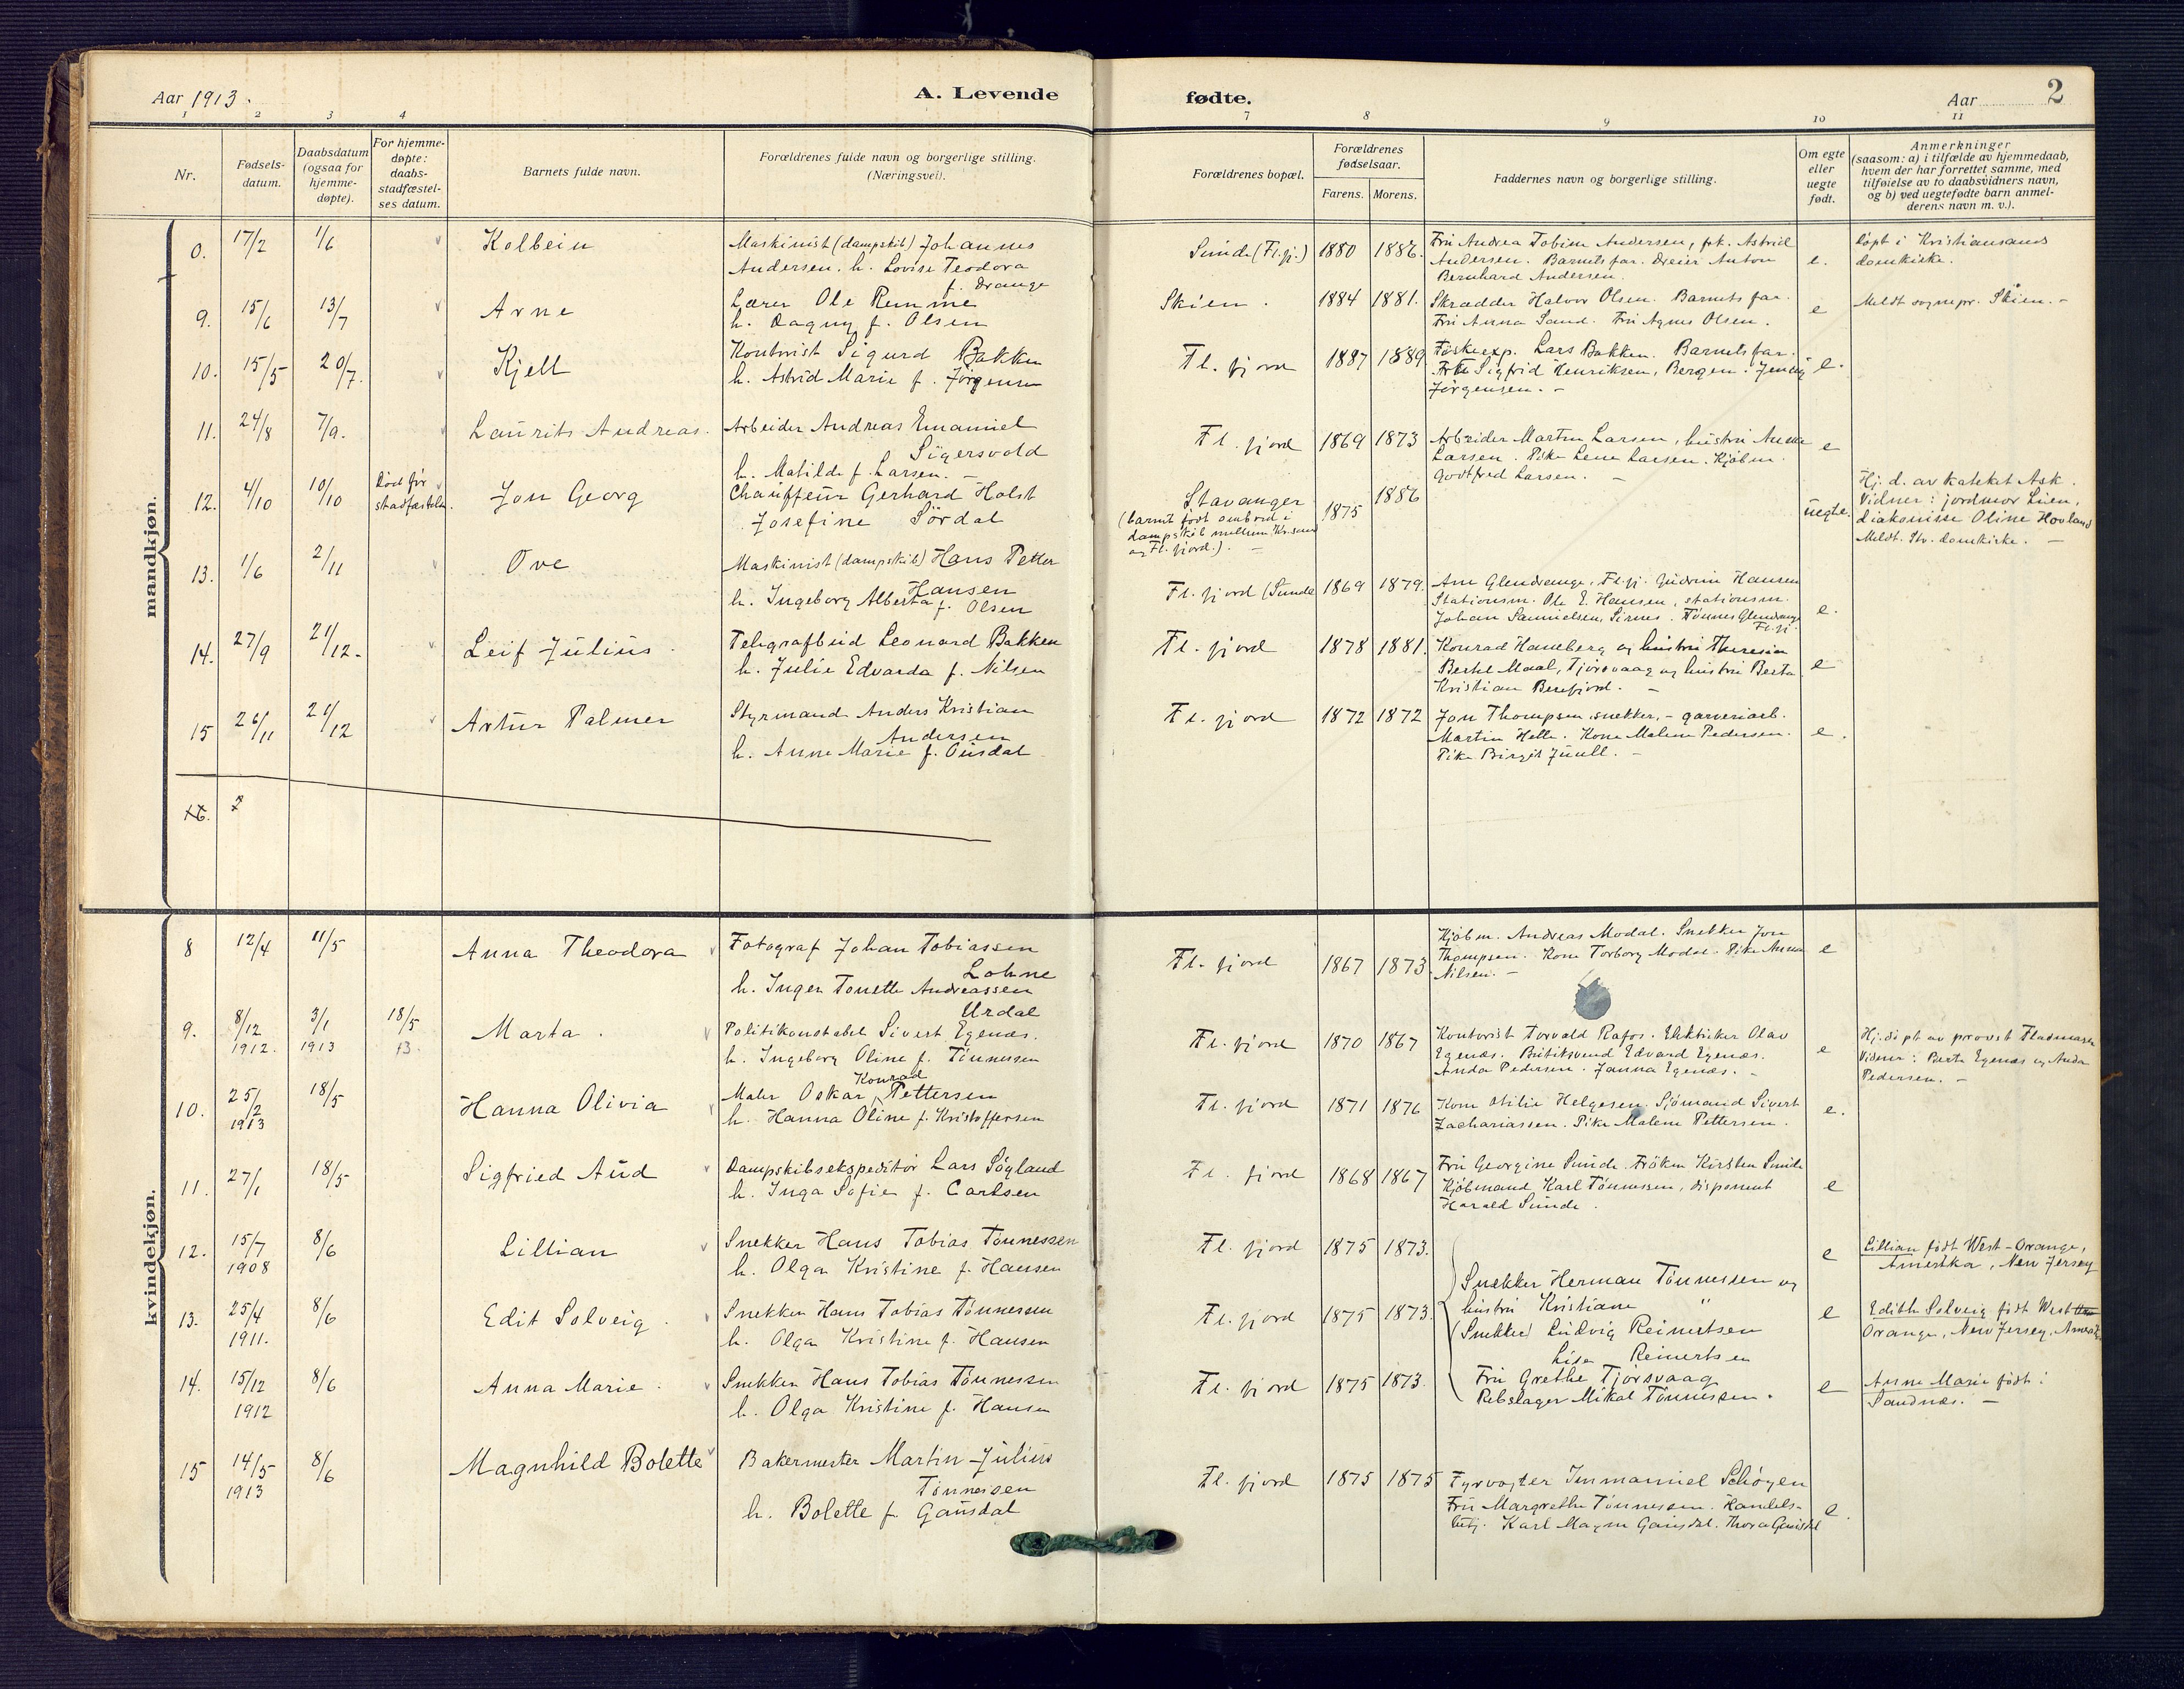 Aar 1913.
A. Levende
fødte.
Aar
2
1 2 3 4
7 8 9 10 11
Nr.
Fødsels-
datum.
Daabsdatum
(ogsaa for
hjemme-
døpte).
For hjemme-
døpte:
daabs-
stadfæstel-
ses datum.
Barnets fulde navn.
Forældrenes fulde navn og borgerlige stilling.
(Næringsvei).
Forældrenes bopæl.
Forældrenes
fødselsaar.
Farens. Morens.
Faddernes navn og borgerlige stilling.
Om egte
eller
uegte
født.
Anmerkninger
(saasom: a) i tilfælde av hjemmedaab,
hvem der har forrettet samme, med
tilføielse av to daabsvidners navn,
og b) ved uegtefødte barn anmel-
derens navn m. v.).
mandkjøn.
0. 17/2 1/6 Kolbein
Maskinist (dampskib) Johannes
Andersen. h. Lovise Teodora
f. Drange
Sunde (Fl.fj.) 1880 1886.
Fru Andrea Tobine Andersen, frk. Astrid
Andersen. Barnets far. Dreier Anton
Bernhard Andersen.
e.
Døpt i Kristiansands
domkirke.
9. 15/6 13/7 Arne
Lærer Ole Remme
h. Dagny f. Olsen
Skien. 1884 1881.
Skrædder Halvor Olsen. Barnets far.
Fru Anna Sand. Fru Agnes Olsen.
e
Meldt sognepr. Skien. -
10. 15/5 20/7. Kjell
Kontorist Sigurd Bakken
h. Astrid Marie f. Jørgensen
Fl. fjord 1887 1889
Lars Bakken. Barnets far.
Sigfrid Henriksen, Bergen. Jenny
Jørgensen. -
e.
11. 24/8 7/9. Laurits Andreas.
Arbeider Andreas Emanuel
Sigersvold
h. Matilde f. Larsen. -
Fl. fjord 1869 1873
Arbeider Martin Larsen, hustru Anna
Larsen. Pike Lene Larsen. Kjøbm.
Godtfred Larsen. -
e
12. 4/10 10/10 Død før
stadfæstelsen.
Jon Georg
Chauffeur Gerhard Holst
Josefine Sørdal
Stavanger
(barnet født ombord i
dampskib mellem Kr.sand
og Fl. fjord.). -
1875 1886
uegte.
Hj. d. av kateket Ask.
Vidner: jordmor Lien,
diakonisse Oline Hovland
Meldt. Stv. domkirke. -
13. 1/6 2/11 Ove
Maskinist (dampskib) Hans Petter
Hansen
h. Ingeborg Alberta f. Olsen
Fl. fjord (Sunde 1869 1879.
Am Glendrange, Fl.fj. Gudrun Hansen
Stationsm. Ole E. Hansen, stationsm.
Johan Samuelsen, Sirnes. Tønnes Glendrange
Fl.fj.
e.
14. 27/9 21/12. Leif Julius.
Telegrafbud Leonard Bakken
h. Julie Edvarda f. Nilsen
Fl. fjord 1878 1881.
Konrad Haneberg og hustru Theresia
Bertel Maal, Tjørsvaag og hustru Berta
Kristian Berefjord. -
e
15 26/11 21/12 Artur Palmer
Styrmand Anders Kristian
Andersen
h. Anne Marie f. Ousdal
Fl. fjord 1872 1872
Jon Thompsen, snekker, - garveriarb.
Martin Helle. Kone Malene Pedersen.
Pike Birgit Juull. -
e.
16. 2
kvindekjøn.
8 12/4 11/5 Anna Theodora
Fotograf Johan Tobiassen
Lohne
h. Inger Tonette Andreassen
Urdal
Fl. fjord 1867 1873
Kjøbm. Andreas Modal. Snekker Jon
Thompsen. Kone Torborg Modal. Pike Anna
Nilsen. -
e
9. 8/12 1912. 3/1 1913 18/5 13. Marta.
Politikonstabel Sivert Egenæs.
h. Ingeborg Oline f. Tønnessen
Fl. fjord 1870 1867
Kontorist Torvald Rafos. Elektriker Olav
Egenæs. Butiksvend Edvard Egenæs.
Anda Pedersen. Janna Egenæs. -
e
Hj. døpt av provst Fladmark
Vidner: Berta Egenæs og Anda
Pedersen. -
10. 25/2 1913 18/5 Hanna Olivia
Konrad
Maler Oskar Pettersen
h. Hanna Oline f. Kristoffersen
Fl. fjord 1871 1876
Kone Otilie Helgesen. Sjømand Sivert
Zachariassen. Pike Malene Pettersen.
e.
11. 27/1 18/5 Sigfried Aud
Dampskibsekspeditør Lars Søyland
h. Inga Sofie f. Carlsen
Fl. fjord 1868 1867
Fru Georgine Sunde. Frøken Kirsten Sunde
Kjøbmand Karl Tønnessen, disponent
Harald Sunde.
e
12. 15/7 1908 8/6 Lillian
Snekker Hans Tobias Tønnessen
h. Olga Kristine f. Hansen
Fl. fjord 1875 1873.
e
Lillian født West-Orange,
Amerika, New Jersey
13. 25/4 1911. 8/6 Edit Solveig.
Snekker Hans Tobias Tønnessen
h. Olga Kristine f. Hansen
Fl. fjord 1875 1873.
Snekker Herman Tønnessen og
hustru Kristiane "
Snekker Ludvig Reinertsen
Lise Reinertsen
Fru Grethe Tjørsvaag
Rebslager Mikal Tønnessen.
e
Edith Solveig født West
Orange, New Jersey, Amerika
14. 15/12 1912 8/6 Anna Marie.
Snekker Hans Tobias Tønnessen
h. Olga Kristine f. Hansen
Fl. fjord 1875 1873.
e
Anne Marie født i
Sandnæs. -
15 14/5 1913 8/6 Magnhild Bolette
Bakermester Martin Julius
Tønnessen
h. Bolette f. Gausdal
Fl. fjord 1875 1875
Fyrvogter Immanuel Schøyen
Fru Margrethe Tønnessen. Handels-
betj. Karl Magn Gausdal. Thora Gausdal
e.